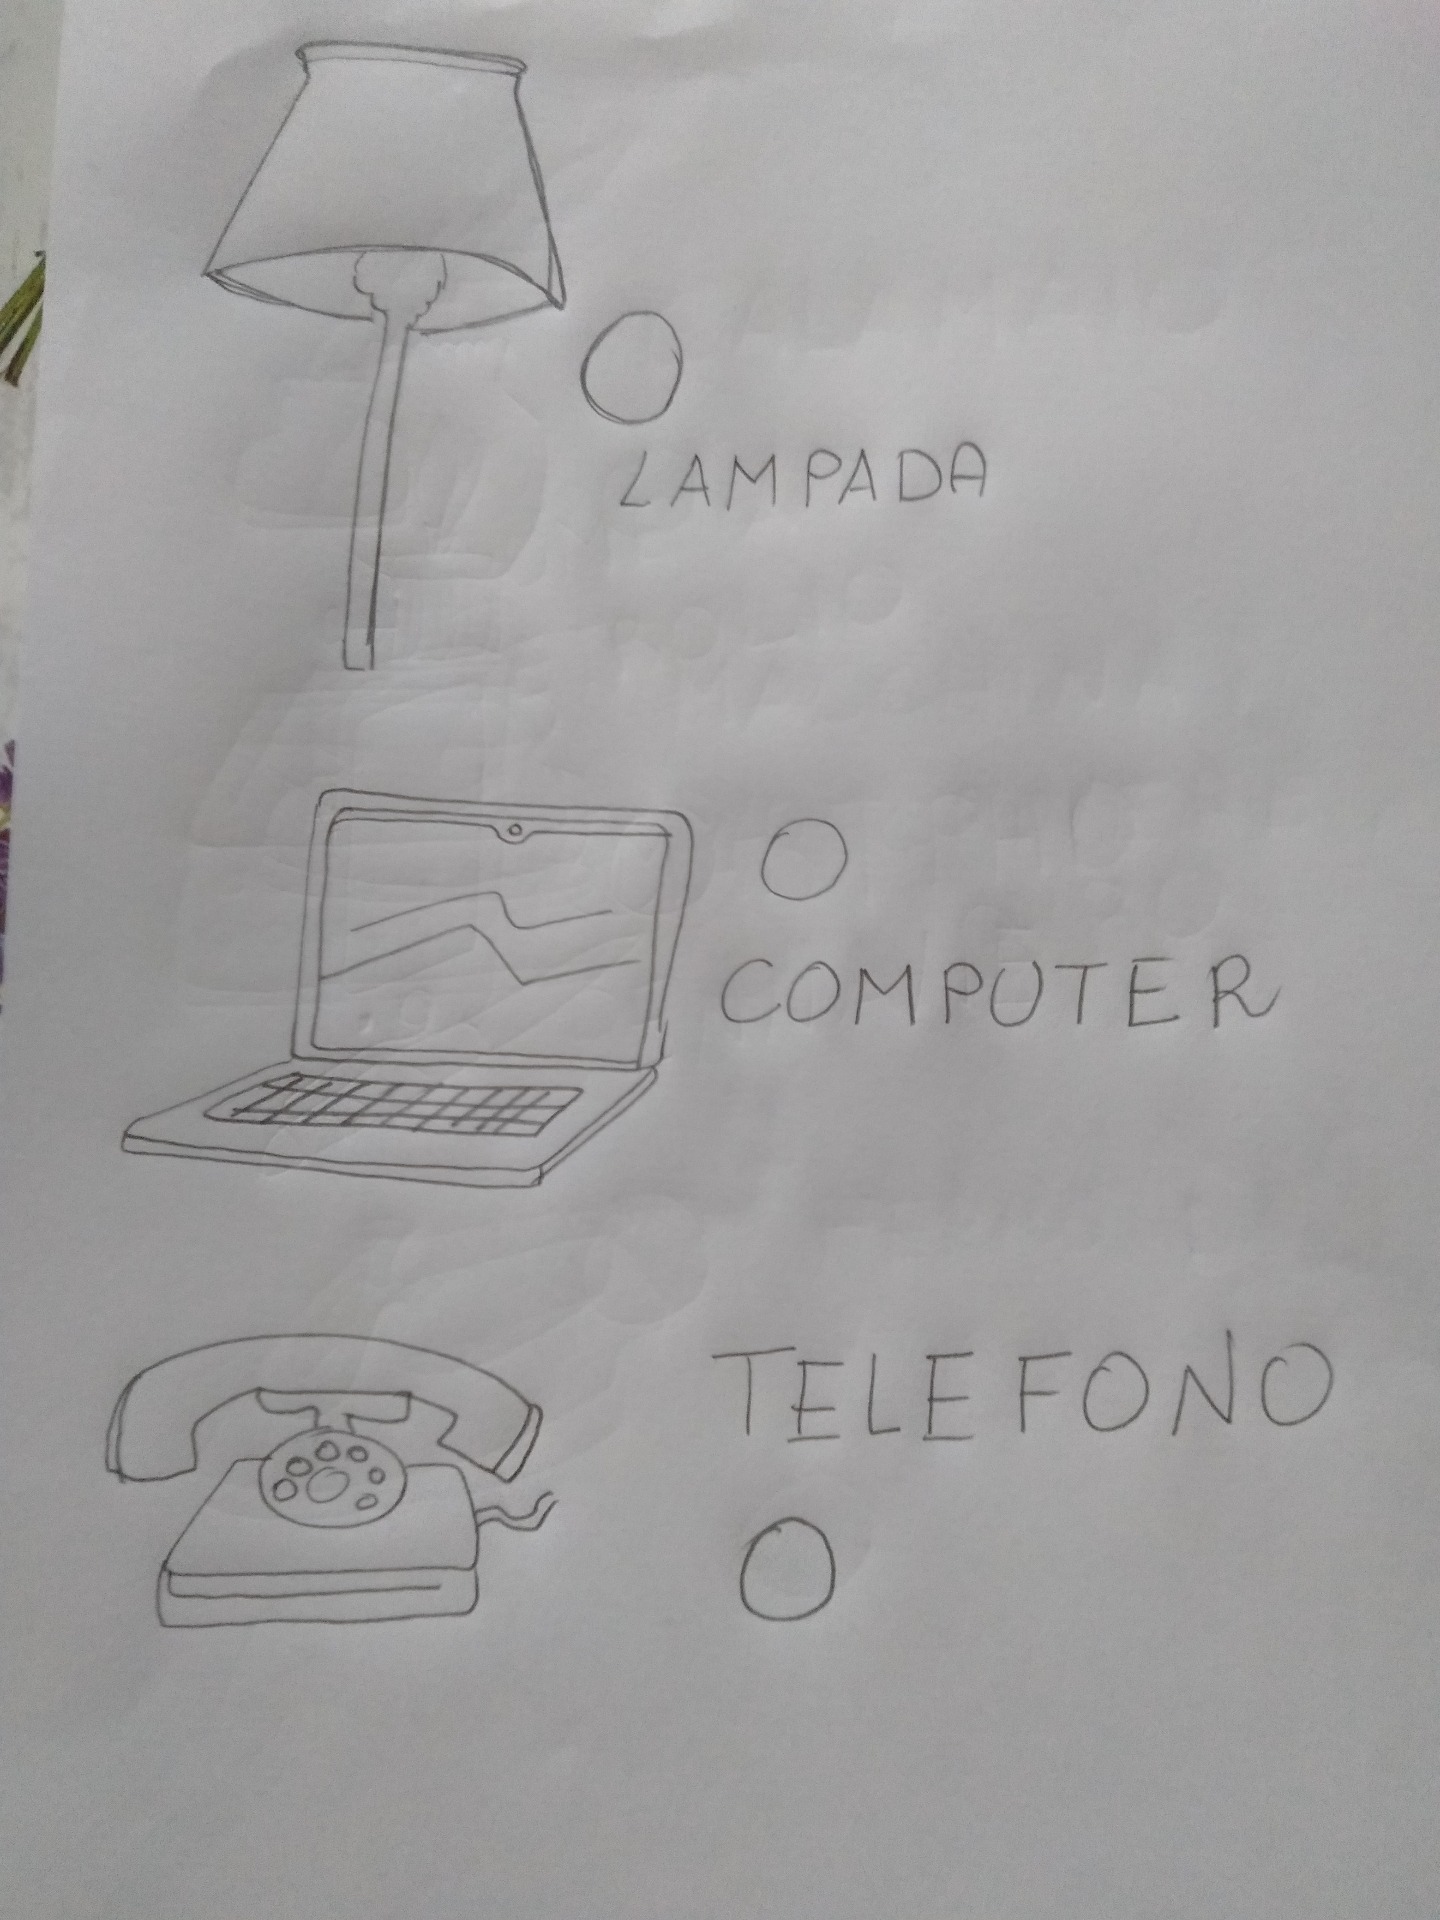 LAMPADA
COMPUTER
TELEFONO